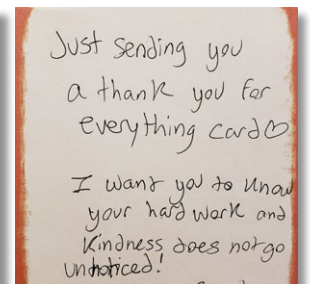 Just sending you
a thank you for
everything card♡
I want you to know
your hard work and
kindness does not go
unnoticed!